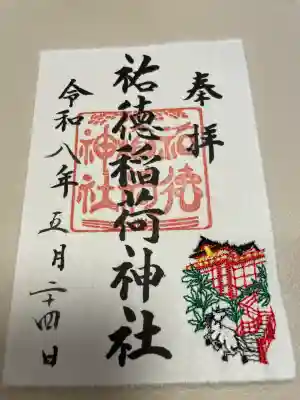 奉拝
祐徳稲荷神社
令和八年五月二十四日